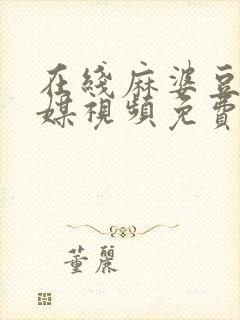 在綫麻婆豆
媒視頻免費
董麗